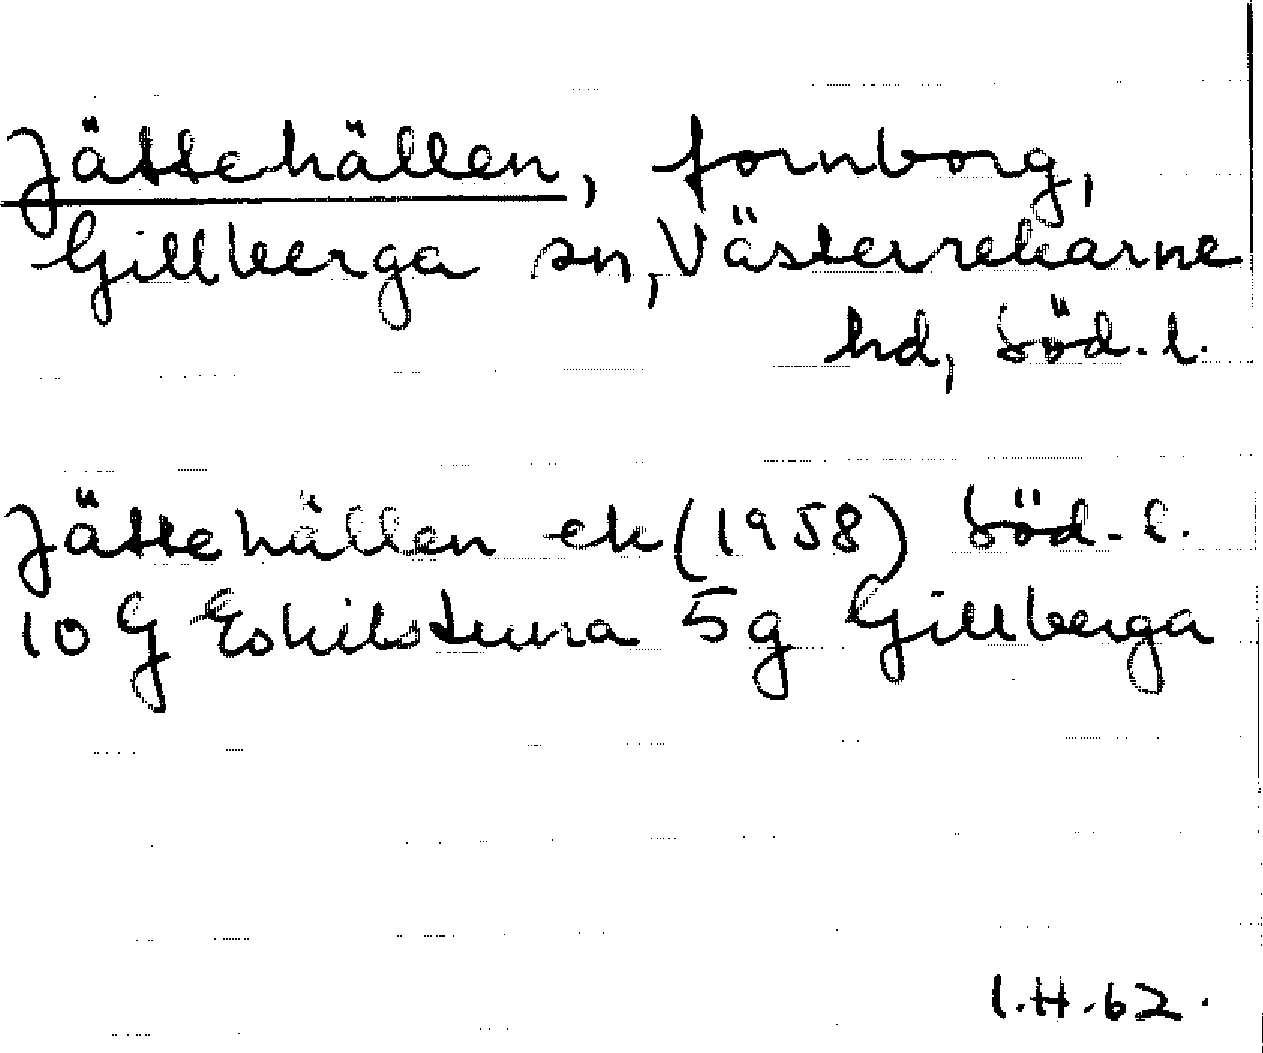 Jättehällen, fornborg,
Gillberga sn, Västerrekarne
hd, Söd. l.
Jättehällen ek (1958) Söd. l.
10 G Eskilstuna 5g Gillberga
I.H. 62.